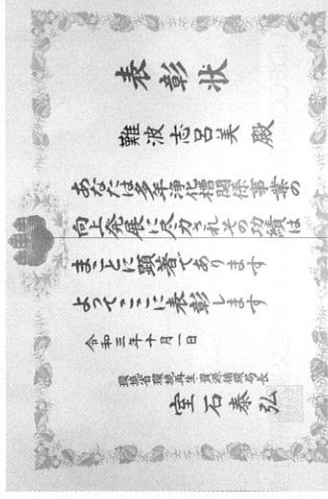 表彰状
難波志呂美 殿
あなたは多年浄化槽関係事業の
向上発展に尽力されその功績は
まことに顕著であります
よってここに表彰します
令和三年十月一日
環境省環境再生・資源循環局長
室石泰弘